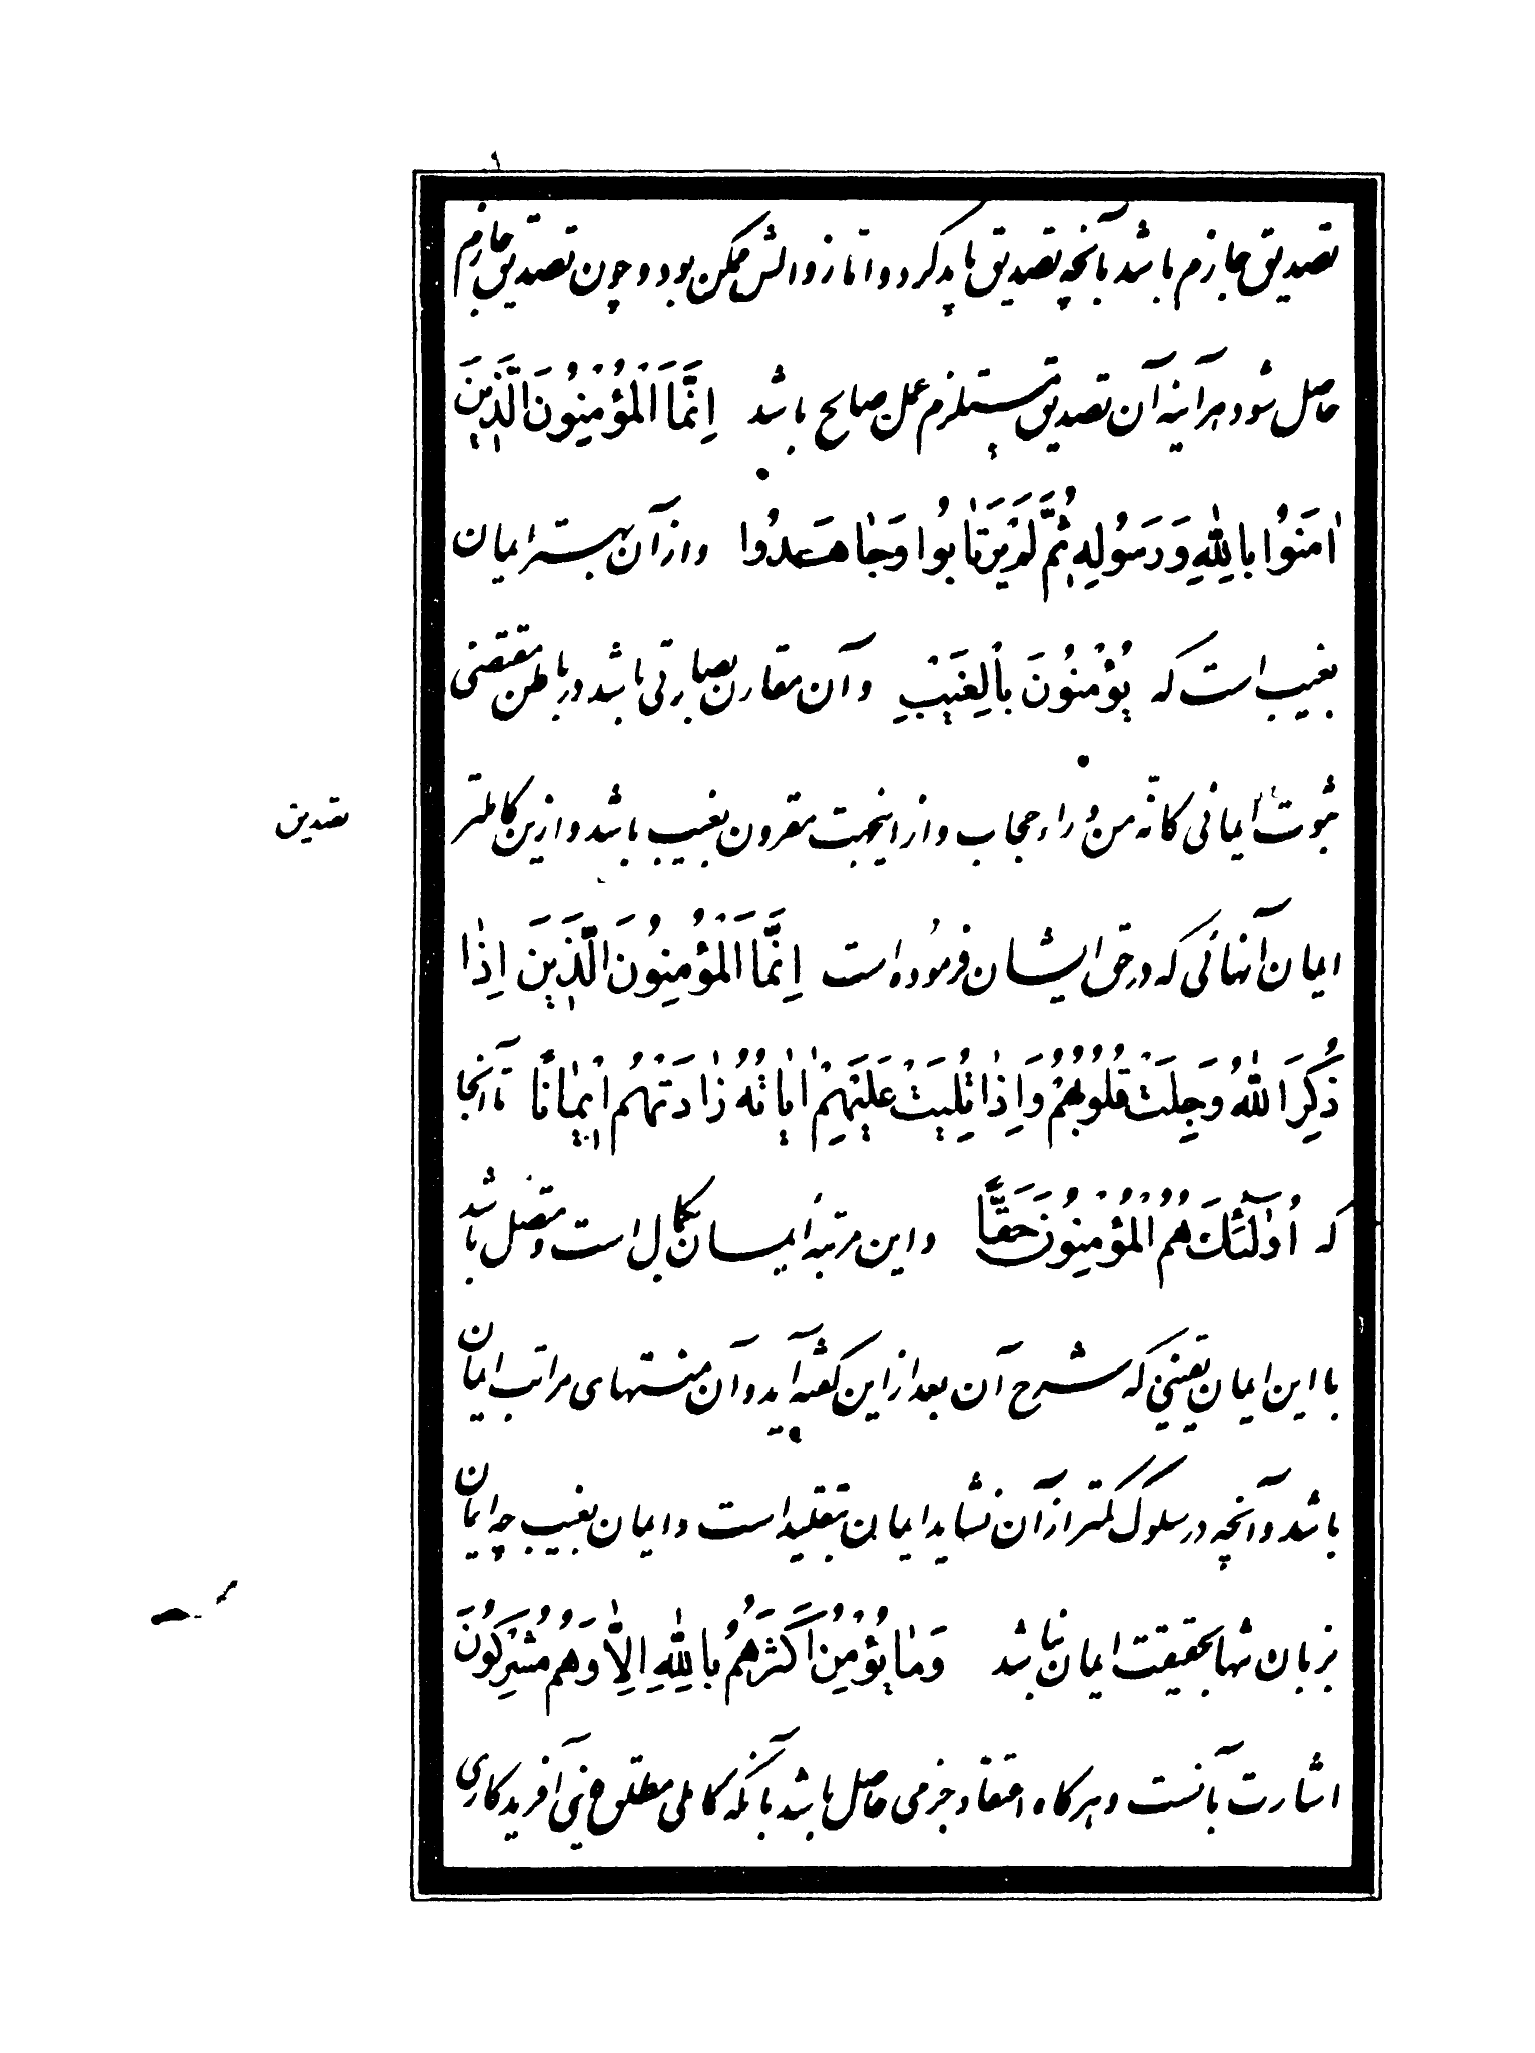 تصدیق جازم باشد بآنچه تصدیق باید کرد و اما زوالش ممکن بود و چون تصدیق جازم
حاصل شود هر آینه آن تصدیق مستلزم عمل صالح باشد اِنَّمَا الْمُؤْمِنُونَ الَّذِینَ
اٰمَنُوا بِاللّٰهِ وَ رَسُولِهِ ثُمَّ لَمْ یَرْتٰابُوا وَ جٰاهَدُوا و از آن بهتر ایمان
بغیب است که یُؤْمِنُونَ بِالْغَیْبِ و آن مقارن بصارتی باشد در باطن مقتضی
ثبوت ایمانی کانّه من وراء حجاب و از اینجهت مقرون بغیب باشد و ازین کاملتر
تصدیق
ایمان آنهائی که در حق ایشان فرموده است اِنَّمَا الْمُؤْمِنُونَ الَّذِینَ اِذٰا
ذُکِرَ اللّٰهُ وَجِلَتْ قُلُوبُهُمْ وَ اِذٰا تُلِیَتْ عَلَیْهِمْ اٰیٰاتُهُ زٰادَتْهُمْ اِیْمٰانًا تا آنجا
که اُولٰئِكَ هُمُ الْمُؤْمِنُونَ حَقًّا و این مرتبهٔ ایمان بکمال است و متصل باشد
با این ایمان یقینی که شرح آن بعد از این گفته آید و آن منتهای مراتب ایمان
باشد و آنچه در سلوک کمتر از آن نشاید ایمان بتقلید است و ایمان بغیب چه ایمان
بزبان تنها بحقیقت ایمان نباشد وَ مٰا یُؤْمِنُ اَکْثَرُهُمْ بِاللّٰهِ اِلاّٰ وَ هُمْ مُشْرِکُونَ
اشارت بآنست و هرکاه اعتقاد جزمی حاصل باشد بآنکه کاملی مطلق هست آفریدکاری